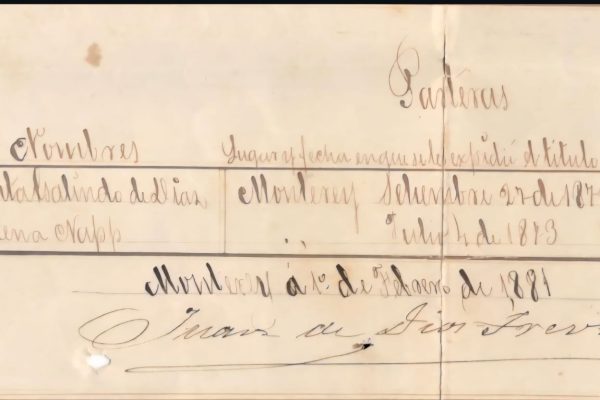 Parteras
Nombres Lugar y fecha en que se le expidió el titulo
Galindo de Dias, Monterey Setiembre 27 de 187
ena Napp " Julio 4 de 1873
Monterey á 1º de Febrero de 1881
Juan de Dios Trev